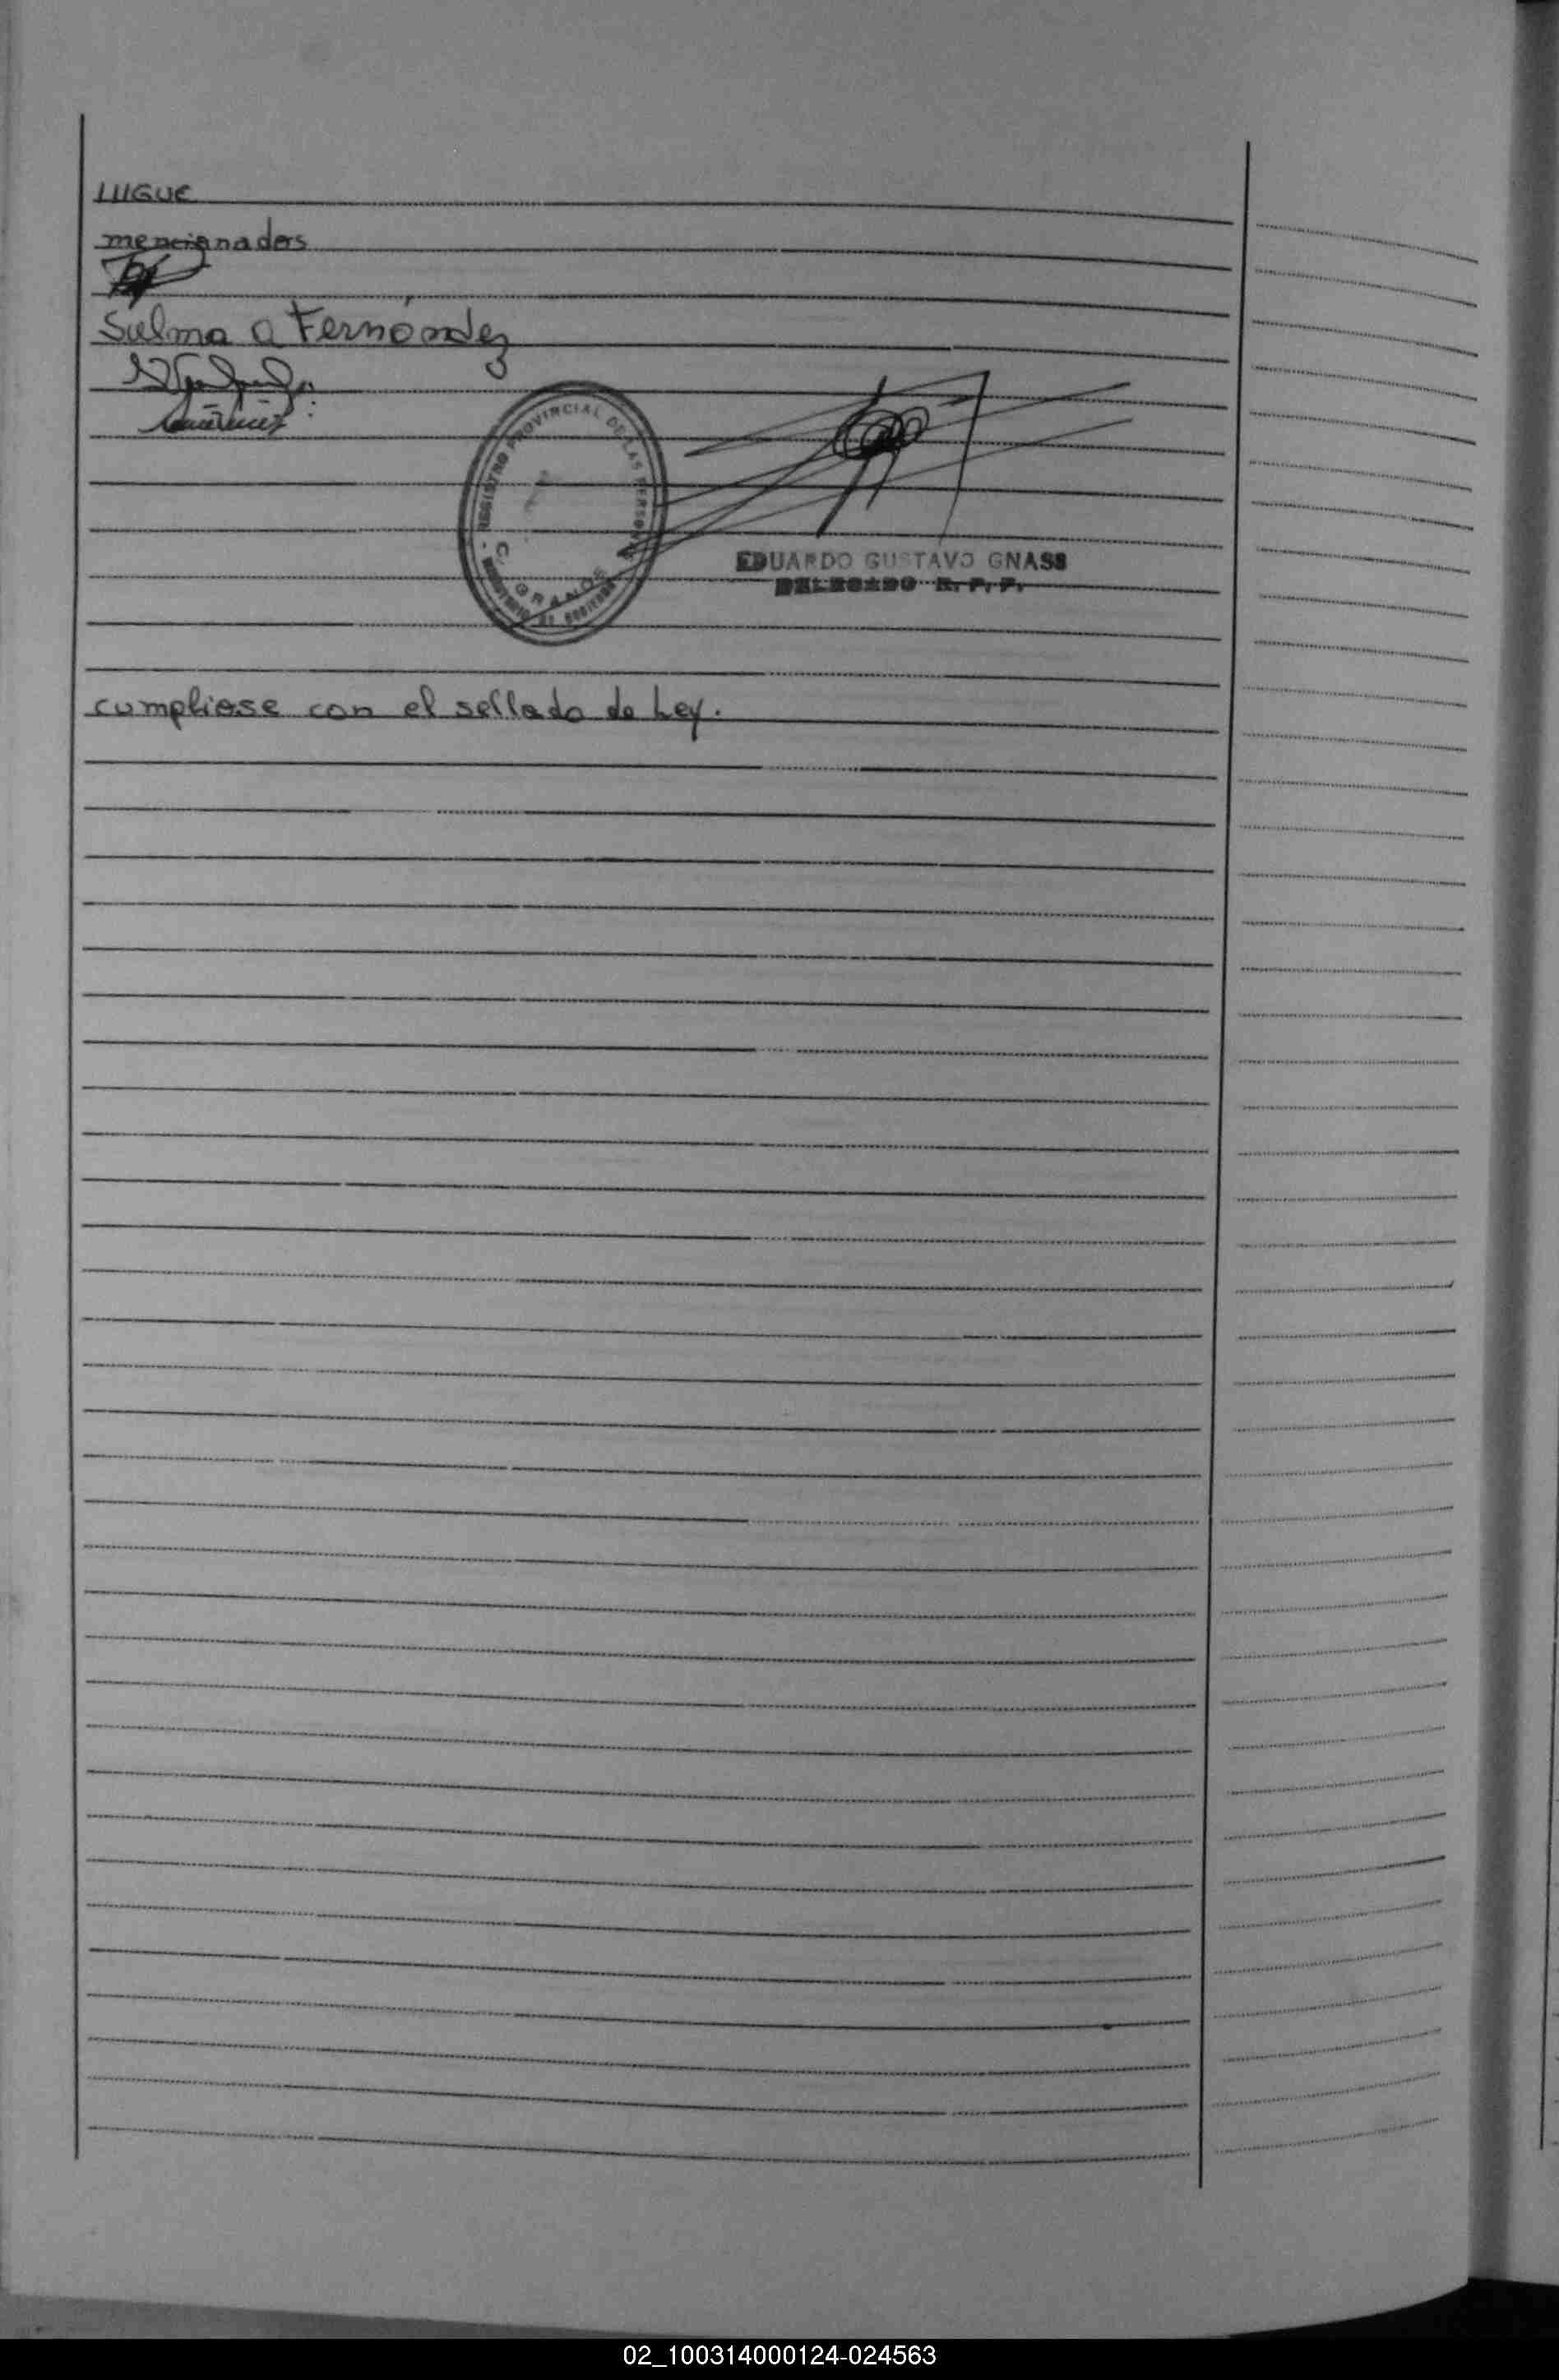 LUGUE
mencionados
Sulma A Fernández
REGISTRO PROVINCIAL DE LAS PERSONAS
C. GRANDE
EDUARDO GUSTAVO GNASS
DELEGADO R. P. P.
cumpliose con el sellado de Ley.
02_100314000124-024563